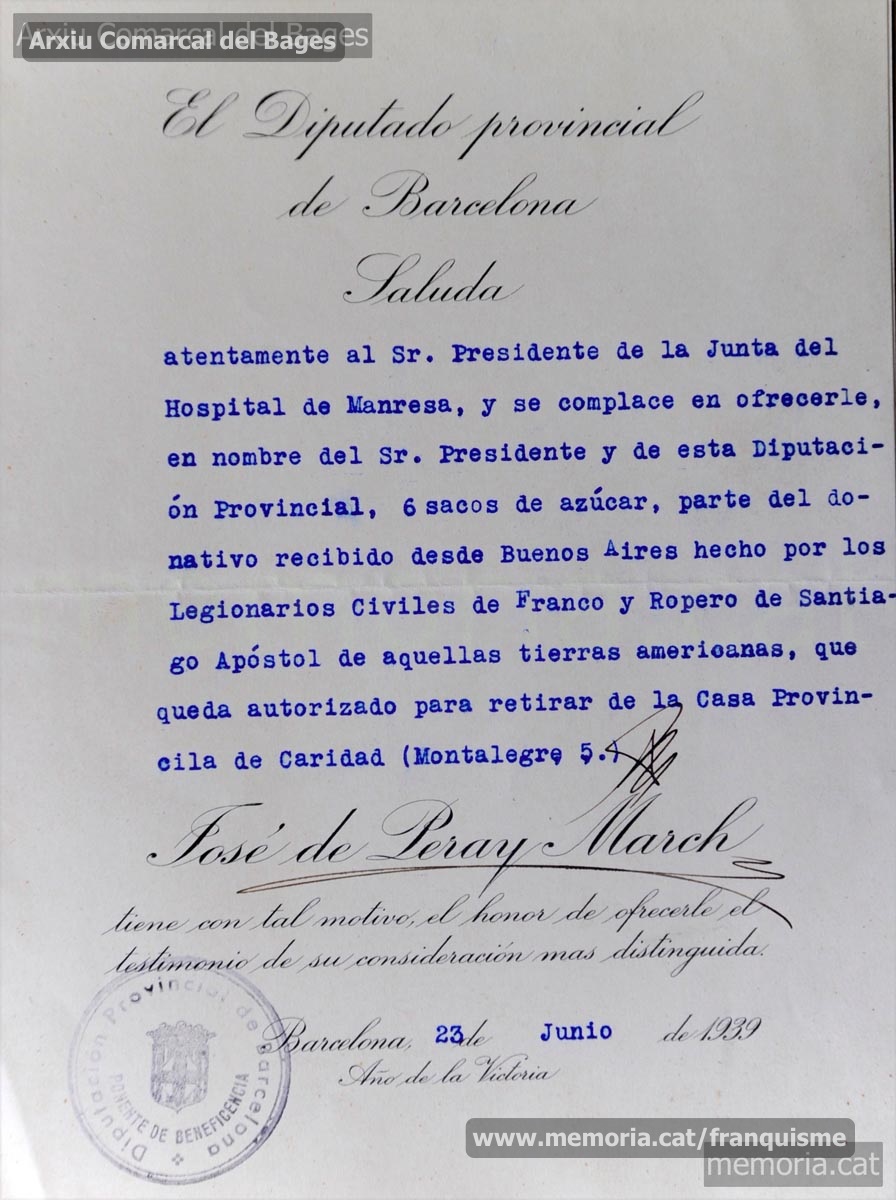 Arxiu Comarcal del Bages
Arxiu Comarcal del Bages
El Diputado provincial
de Barcelona
Saluda
atentamente al Sr. Presidente de la Junta del
Hospital de Manresa, y se complace en ofrecerle,
en nombre del Sr. Presidente y de esta Diputaci-
ón Provincial, 6 sacos de azúcar, parte del do-
nativo recibido desde Buenos Aires hecho por los
Legionarios Civiles de Franco y Ropero de Santia-
go Apóstol de aquellas tierras americanas, que
queda autorizado para retirar de la Casa Provin-
cila de Caridad (Montalegre 5.)
José de Peray March
tiene con tal motivo, el honor de ofrecerle el
testimonio de su consideración mas distinguida.
Barcelona, 23 de Junio de 1939
Año de la Victoria
Diputación Provincial de Barcelona
PONENTE DE BENEFICENCIA
www.memoria.cat/franquisme
memoria.cat